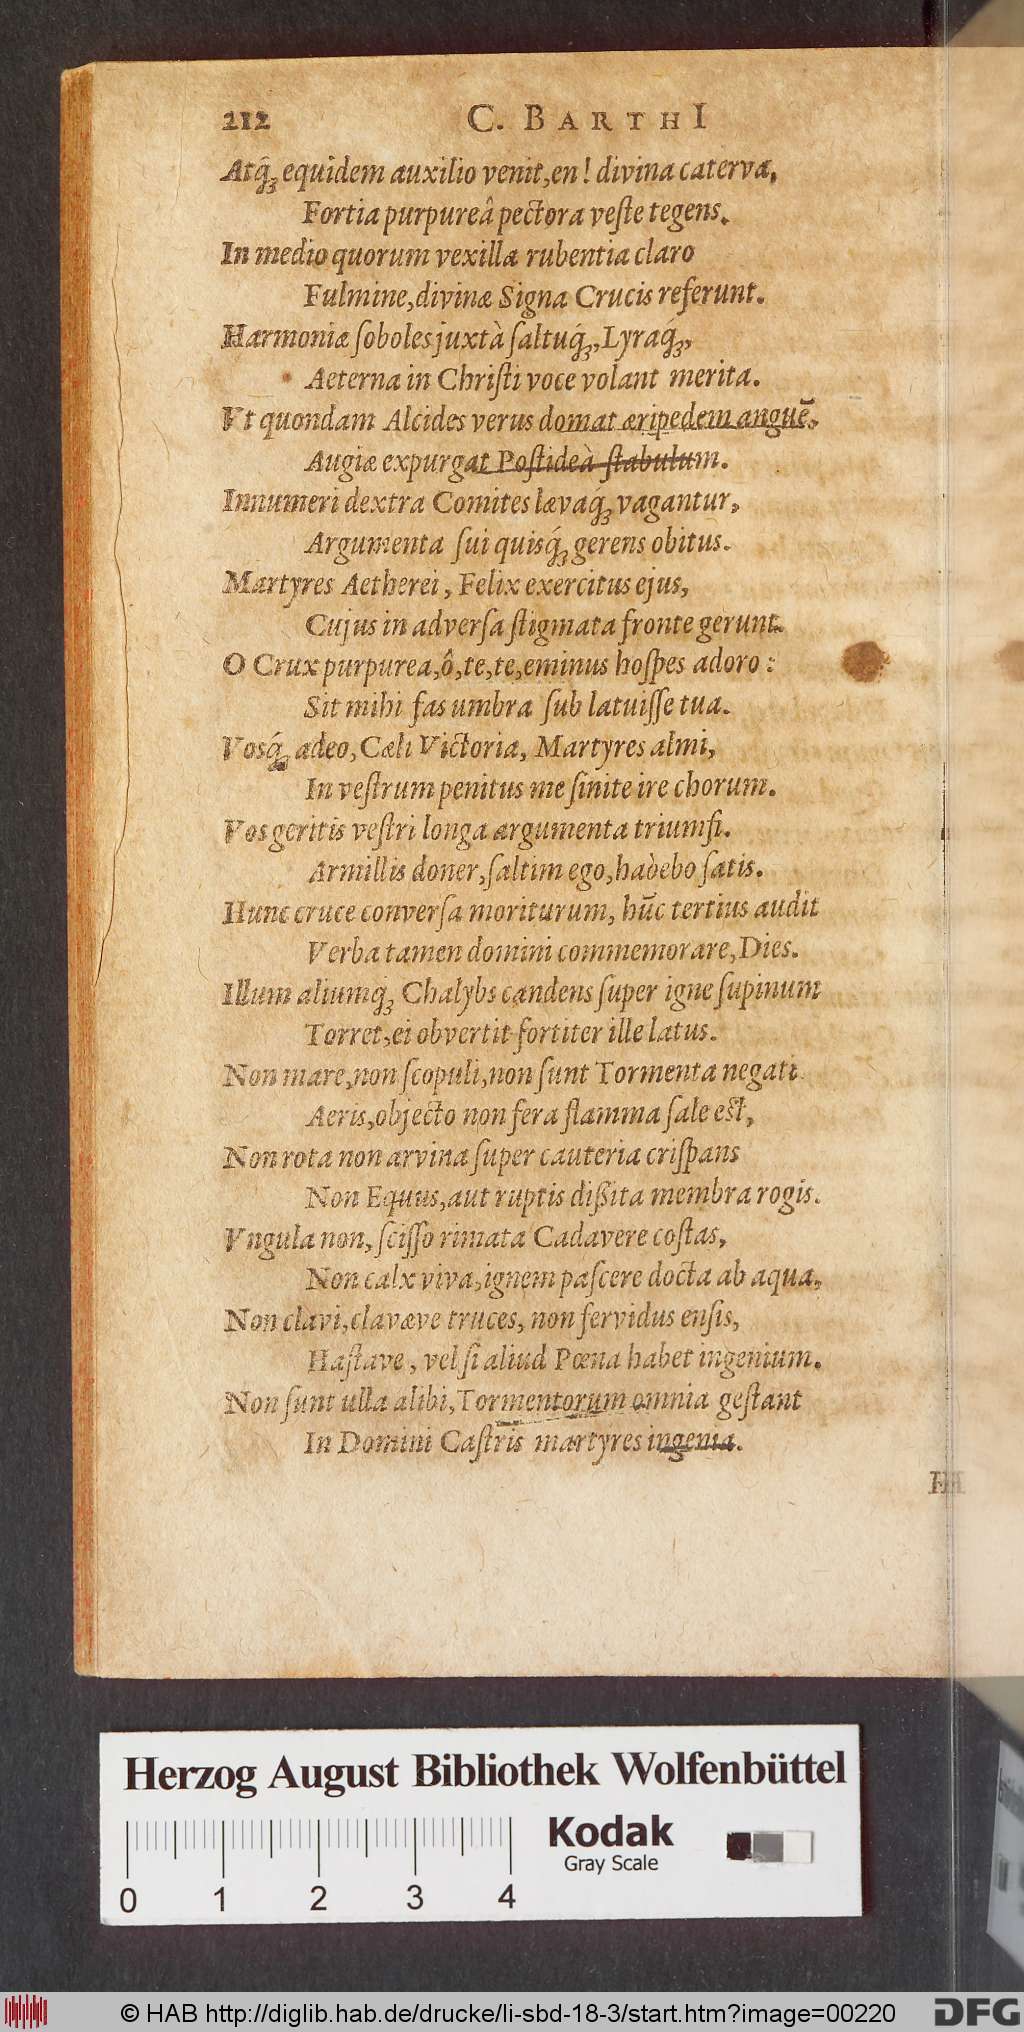 212 C. BARTHI
Atq́; equidem auxilio venit, en! divina caterva,
Fortia purpureâ pectora veſte tegens.
In medio quorum vexilla rubentia claro
Fulmine, divinæ Signa Crucis referunt.
Harmoniæ ſoboles juxtà ſaltuq́;, Lyraq́;,
Aeterna in Chriſti voce volant merita.
Vt quondam Alcides verus domat æripedem anguē,
Augiæ expurgat Poſtideà ſtabulum.
Innumeri dextra Comites lævaq́; vagantur,
Argumenta ſui quisq́; gerens obitus.
Martyres Aetherei, Felix exercitus ejus,
Cujus in adverſa ſtigmata fronte gerunt.
O Crux purpurea, ô, te, te, eminus hoſpes adoro:
Sit mihi fas umbra ſub latuiſſe tua.
Vosq́; adeo, Cæli Victoria, Martyres almi,
In veſtrum penitus me ſinite ire chorum.
Vos geritis veſtri longa argumenta triumfi.
Armillis doner, ſaltim ego, habebo ſatis.
Hunc cruce converſa moriturum, hūc tertius audit
Verba tamen domini commemorare, Dies.
Illum aliumq́; Chalybs candens ſuper igne ſupinum
Torret, ei obvertit fortiter ille latus.
Non mare, non ſcopuli, non ſunt Tormenta negati
Aeris, objecto non fera flamma ſale eſt,
Non rota non arvina ſuper cauteria criſpans
Non Equus, aut ruptis diſſita membra rogis.
Vngula non, ſciſſo rimata Cadavere coſtas,
Non calx viva, ignem paſcere docta ab aqua,
Non clavi, clavæve truces, non fervidus enſis,
Haſtave, vel ſi aliud Pœna habet ingenium.
Non ſunt ulla alibi, Tormentorum omnia geſtant
In Domini Caſtris martyres ingenia.
Herzog August Bibliothek Wolfenbüttel
Kodak
Gray Scale
0 1 2 3 4
© HAB http://diglib.hab.de/drucke/li-sbd-18-3/start.htm?image=00220
DFG